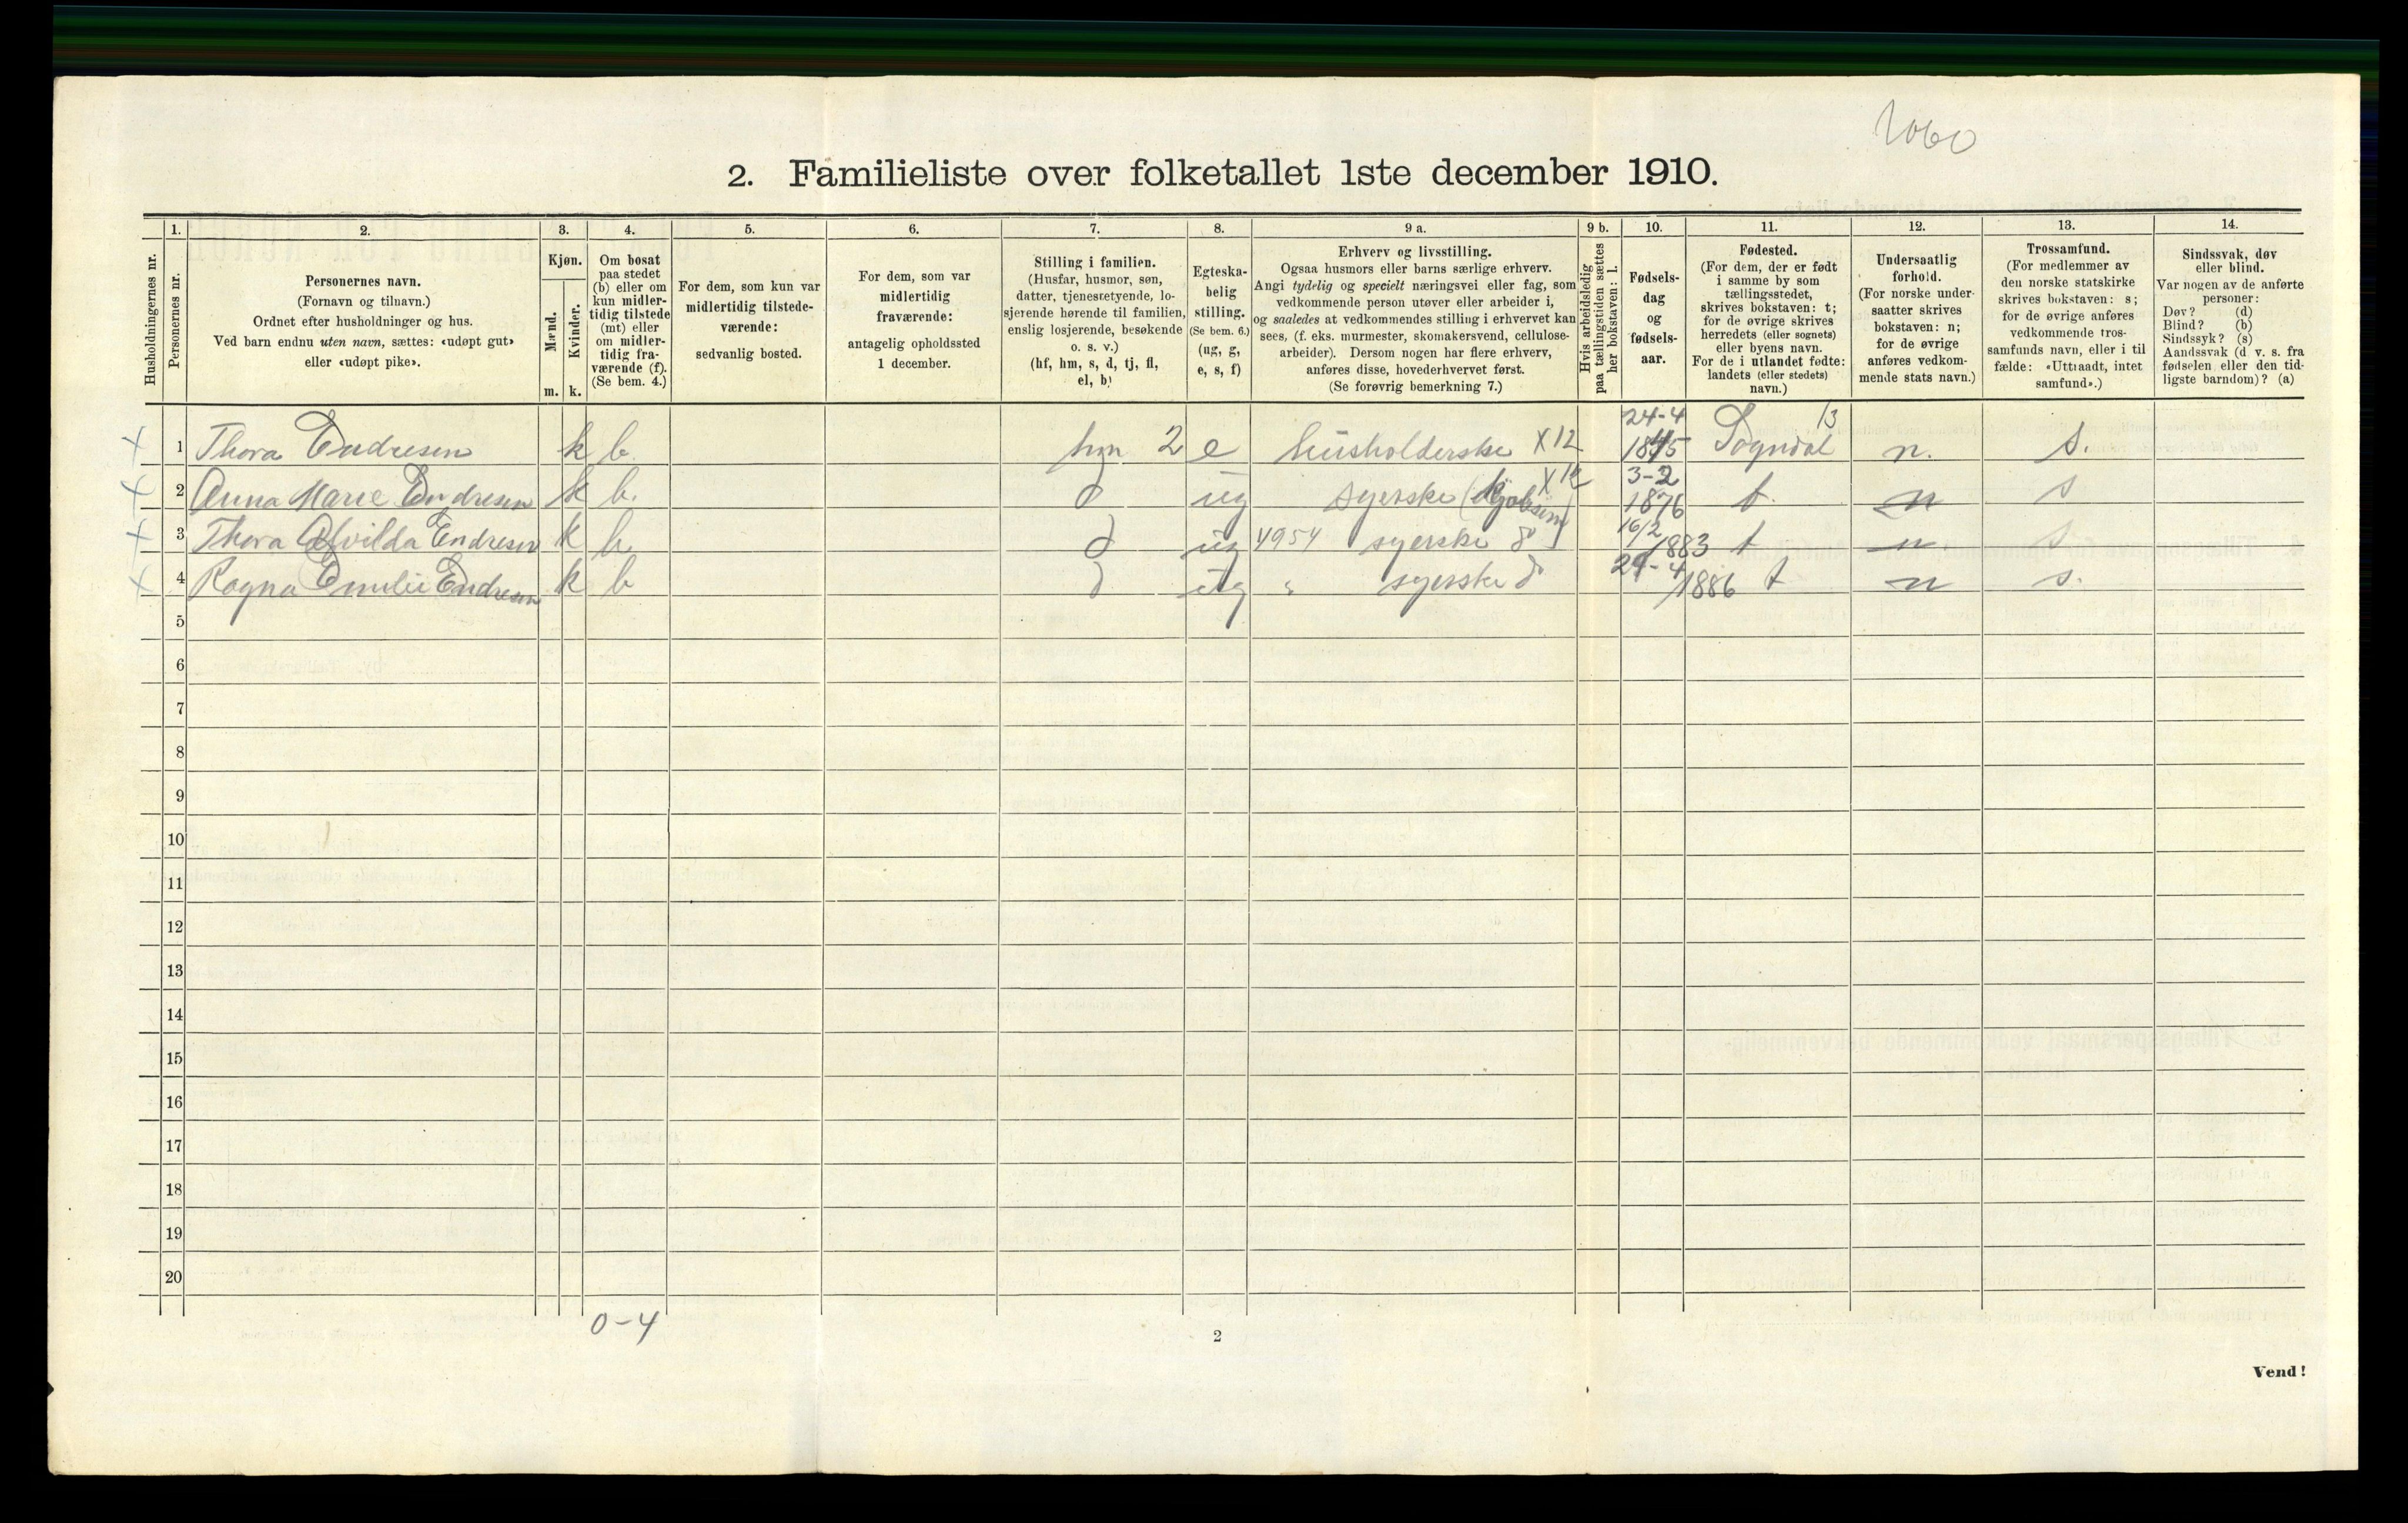 2060
2. Familieliste over folketallet 1ste december 1910.
Husholdningernes nr.
1. Personernes nr.
2. Personernes navn.
(Fornavn og tilnavn.)
Ordnet efter husholdninger og hus.
Ved barn endnu uten navn, sættes: «udøpt gut»
eller «udøpt pike».
3. Kjøn.
Mænd. m.
Kvinder. k.
4. Om bosat
paa stedet
(b) eller om
kun midler-
tidig tilstede
(mt) eller
om midler-
tidig fra-
værende (f).
(Se bem. 4.)
5. For dem, som kun var
midlertidig tilstede-
værende:
sedvanlig bosted.
6. For dem, som var
midlertidig
fraværende:
antagelig opholdssted
1 december.
7. Stilling i familien.
(Husfar, husmor, søn,
datter, tjenestetyende, lo-
sjerende hørende til familien,
enslig losjerende, besøkende
o. s. v.)
(hf, hm, s, d, tj, fl,
el, b)
8. Egteska-
belig
stilling.
(Se bem. 6.)
(ug, g,
e, s, f)
9 a. Erhverv og livsstilling.
Ogsaa husmors eller barns særlige erhverv.
Angi tydelig og specielt næringsvei eller fag, som
vedkommende person utøver eller arbeider i,
og saaledes at vedkommendes stilling i erhvervet kan
sees, (f. eks. murmester, skomakersvend, cellulose-
arbeider). Dersom nogen har flere erhverv,
anføres disse, hovederhvervet først.
(Se forøvrig bemerkning 7.)
9 b. Hvis arbeidsledig
paa tællingstiden sættes
her bokstaven: l.
10. Fødsels-
dag
og
fødsels-
aar.
11. Fødested.
(For dem, der er født
i samme by som
tællingsstedet,
skrives bokstaven: t;
for de øvrige skrives
herredets (eller sognets)
eller byens navn.
For de i utlandet fødte:
landets (eller stedets)
navn.)
12. Undersaatlig
forhold.
(For norske under-
saatter skrives
bokstaven: n;
for de øvrige
anføres vedkom-
mende stats navn.)
13. Trossamfund.
(For medlemmer av
den norske statskirke
skrives bokstaven: s;
for de øvrige anføres
vedkommende tros-
samfunds navn, eller i til
fælde: «Uttraadt, intet
samfund».)
14. Sindssvak, døv
eller blind.
Var nogen av de anførte
personer:
Døv? (d)
Blind? (b)
Sindssyk? (s)
Aandssvak (d. v. s. fra
fødselen eller den tid-
ligste barndom)? (a)
x 1 Thora Endresen k b. hm 2 e husholderske X12 24-4 1845 Sogndal 13 n. s.
x 2 Anna Marie Endresen k b. d ug syerske X12 3-2 1876 t. n s
x 3 Thora Alvilda Endresen k b. d ug 4954 syerske 16/2 1883 t n. s
x 4 Ragna Emilie Endresen k b d ug " syerske 29-4 1886 t n s.
5
6
7
8
9
10
11
12
13
14
15
16
17
18
19
20
0-4
2
Vend!